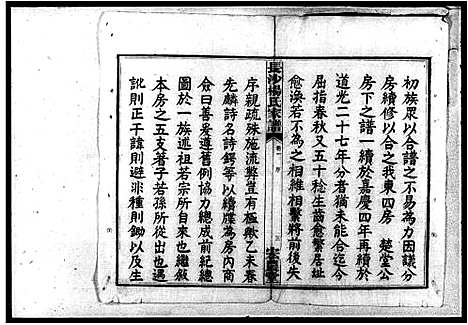 初族眾以合譜之不易為力因議分
房續修以合之我東四房　楚堂公
房下之譜一續於嘉慶四年再續於
道光二十七年分者猶未能合迄今
屈指春秋又五十稔生齒愈繁居址
愈渙若不為之相維相繫將前後失
長沙楊氏家譜
卷一序
序親疏殊施流弊豈有極歟乙未春
先麟詩名詩鍔等以續牒為房內商
僉曰善爰遵舊例協力總成前紀總
圖於一族述祖若宗所自來也繼敘
本房之五支著子若孫所從出也至
訛則正干諱則避非種則鋤以及生